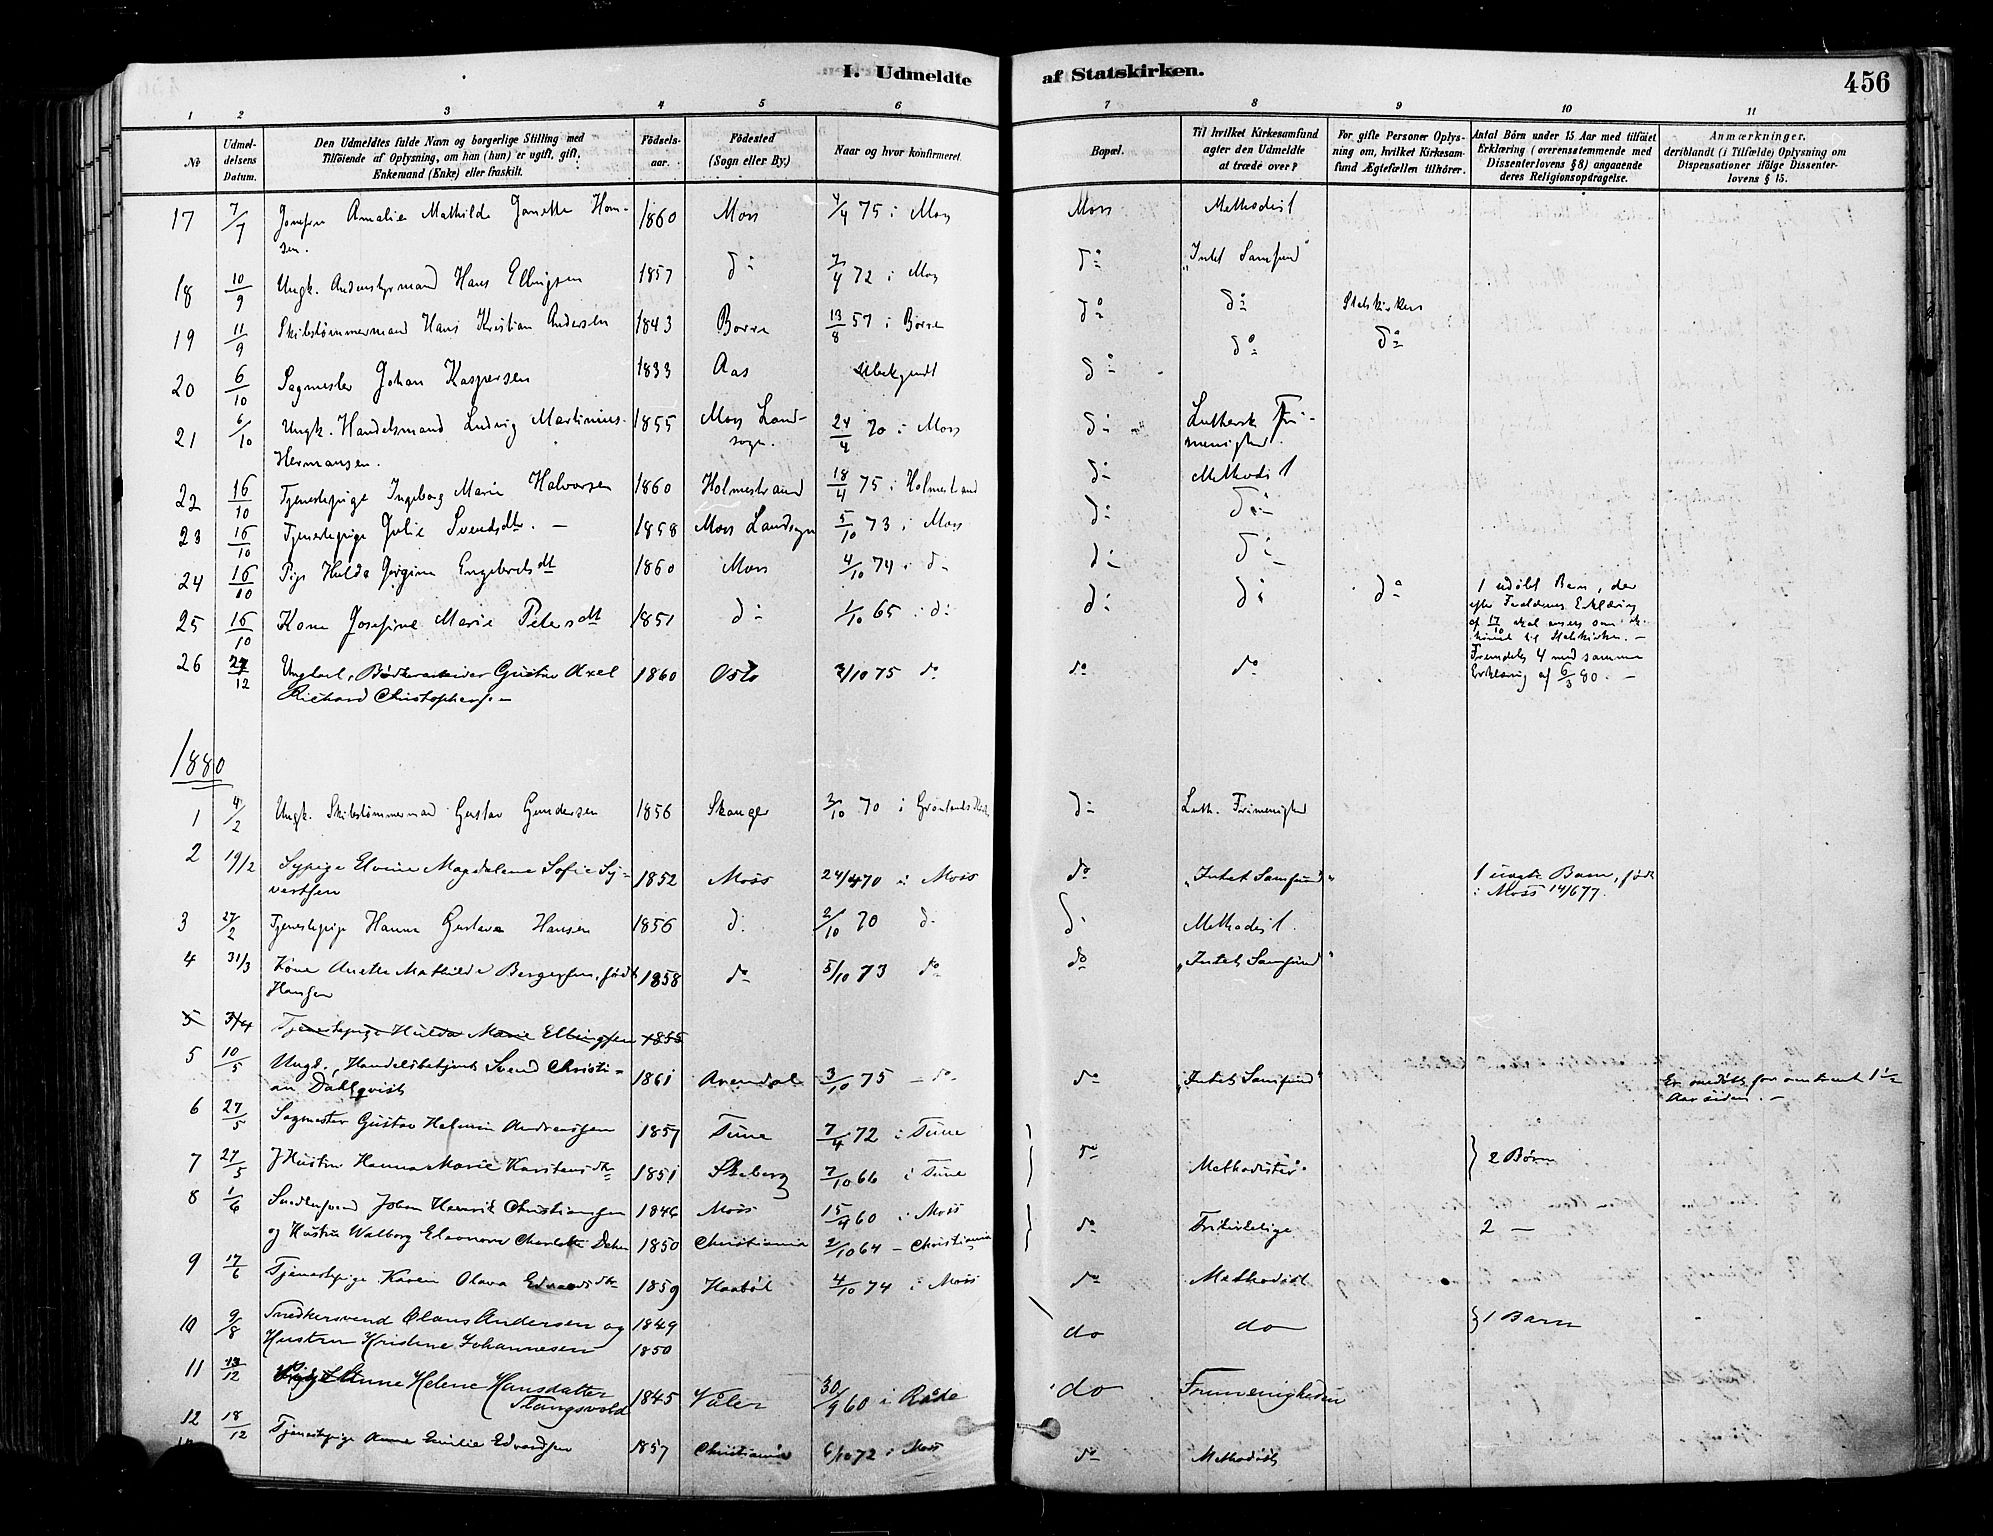 I. Udmeldte af Statskirken. 456
1 2 3 4 5 6 7 8 9 10 11
No
Udmel-
delsens
Datum.
Den Udmeldtes fulde Navn og borgerlige Stilling med
Tilføiende af Oplysning, om han (hun) er ugift, gift,
Enkemand (Enke) eller fraskilt.
Fødsels-
aar.
Fødested
(Sogn eller By.)
Naar og hvor konfirmeret.
Bopæl.
Til hvilket Kirkesamfund
agter den Udmeldte
at træde over?
For gifte Personer Oplys-
ning om, hvilket Kirkesam-
fund Ægtefællen tilhörer.
Antal Börn under 15 Aar med tilföiet
Erklæring (overensstemmende med
Dissenterlovens § 8) angaaende
deres Religionsopdragelse.
Anmærkninger,
deriblandt (i Tilfælde) Oplysning om
Dispensationer ifölge Dissenter-
lovens § 15.
17 7/7 Jomfru Amalie Mathilde Janette Han- 1860 Moss 4/4 75 i Moss Moss Methodist
sen.
18 10/9 Ungk. Andenstyrmand Hans Ellingsen 1857 do 7/4 72 i Moss do "Intet Samfund"
19 11/9 Skibstømmermand Hans Kristian Andersen 1843 Borre 13/8 57 i Borre do do Statskirken
20 6/10 Sagmester Johan Kaspersen 1833 Aas Ubekjendt do do do
21 6/10 Ungk. Handelsmand Ludvig Martinius 1855 Moss Land- 24/4 70 i Moss do Luthersk Fri-
Hermansen. sogn. menighed.
22 16/10 Tjenestepige Ingeborg Marie Halvorsen 1860 Holmestrand 18/4 75 i Holmestrand do Methodist
23 16/10 Tjenestepige Julie Svendsdtr. 1858 Moss Landsogn 5/10 73 i Moss do do
24 16/10 Pige Hulda Georgine Engebretsdt 1860 Moss 4/10 74 i do do do
25 16/10 Kone Josefine Marie Petersdt 1851 do 1/10 65 i do do do do 1 udøbt Barn, der
efter Forældrenes Erklæring
af 17/10 skal ansees som
til Statskirken. -
26 27/12 Ungkarl, Bødkerarbeider Gustav Axel 1860 Oslo 3/10 75 do do do Fremdeles 4 med samme
Richard Christophers. - Erklæring af 6/3 80. -
1880
1 4/2 Ungk. Skibstømmermand Gustav Gundersen 1856 Skanger 3/10 70 i Grønlands do Luth. Frimenighed
2 19/2 Sypige Elvine Magdalene Sofie Sy- 1852 Moss 24/4 70 i Moss do "Intet Samfund" 1 uægte Barn, født
vertsen i Moss 14/6 77.
3 27/2 Tjenestepige Hanna Gustava Hansen 1856 do 2/10 70 do do Methodist.
4 31/3 Kone Anette Mathilde Bergersen, født 1858 do 5/10 73 do do "Intet Samfund"
Hansen
5 3/4 Tjenestepige Hulda Marie Ellingsen 1855
5 10/5 Ungk., Handelsbetjent Svend Christi- 1861 Arendal 3/10 75 - do do "Intet Samfund" Er omdøbt for omtrent 1 1/2
an Dahlqvist Aar siden. -
6 27/5 Sagmester Gustav Helmin Andreassen 1857 Tune 7/4 72 i Tune
7 27/5 Hustru Hanna Marie Karstensdtr 1851 Skeberg 7/10 66 i Tune do Methodister. 2 Børn
8 1/6 Snedkersvend Johan Henrik Christiansen 1846 Moss 15/9 60 i Moss
og Hustru Walborg Eleonora Charlotte 1850 Christiania 2/10 64 - Christiania do Frikirkelige 2 -
9 17/6 Tjenestepige Karen Olava Edvardsdtr 1859 Haabøl 4/10 74 i Moss do Methodist
10 9/8 Snedkersvend Olaus Andersen og 1849
Hustru Kristine Johannesen 1850 do do 1 Barn
11 13/12 Anne Helene Hansdatter 1845 Våler 30/9 60 i Råde do Frimenigheden
Slangsvold
12 18/12 Tjenestepige Anne Emilie Edvardsen 1857 Christiania 6/10 72 i Moss do Methodist